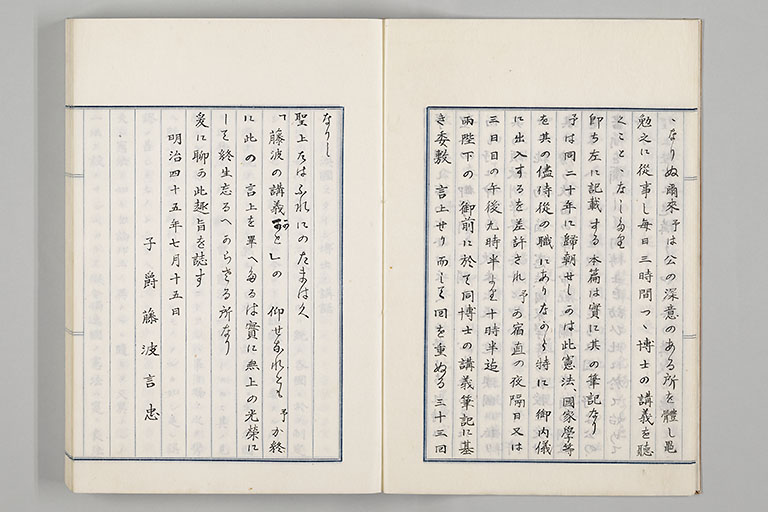 ヽなりぬ爾來予は公の深意のある所を體し黽
勉之に從事し每日三時間つゝ博士の講義を聽
くことゝなしたり
卽ち左に記載する本篇は實に其の筆記なり
予は同二十年に歸朝せしかは此憲法國家學等
を其の儘侍從の職にありなから特に御內儀
に出入するを差許され予か宿直の夜隔日又は
三日目の午後九時半より十時半迄
兩陛下の御前に於て同博士の講義筆記に基
き委敷言上せり而して回を重ぬる三十三回
なりし
聖上は
「藤波の講義かと」の仰せ予か終
に此の言上を畢へたるは實に無上の光榮に
して終生忘るへからさる所なり
爰に聊か此趣旨を誌す
明治四十五年七月十五日
子爵藤波言忠